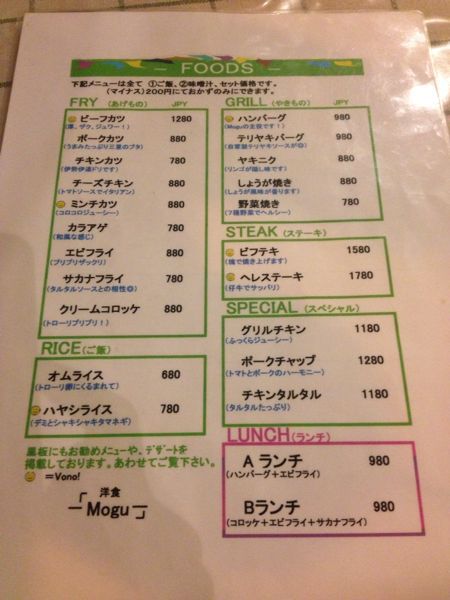 FOODS
下記メニューは全て ①ご飯、②味噌汁、セット価格です。
(マイナス)200円にておかずのみにできます。
FRY (あげもの) JPY
ビーフカツ 1280
(厚、ザク、ジュワー!)
ポークカツ 880
(うまみたっぷり三重のブタ)
チキンカツ 780
(伊勢伊達ドリです)
チーズチキン 880
(トマトソースでイタリアン)
ミンチカツ 880
(コロコロジューシー)
カラアゲ 780
(和風な感じ)
エビフライ 880
(プリプリザックリ)
サカナフライ 780
(タルタルソースとの相性◎)
クリームコロッケ 880
(トローリプリプリ!)
RICE (ご飯)
オムライス 680
(トローリ卵にくるまれて)
ハヤシライス 780
(デミとシャキシャキタマネギ)
黒板にもお勧めメニューや、デザートを
掲載しております。あわせてご覧下さい。
=Vono!
洋食
「Mogu」
GRILL (やきもの) JPY
ハンバーグ 980
(Moguの主役です!)
テリヤキバーグ 980
(自家製テリヤキソースが◎)
ヤキニク 880
(リンゴが隠し味です)
しょうが焼き 880
(しょうが風味が香ります)
野菜焼き 780
(7種野菜でヘルシー)
STEAK (ステーキ)
ビフテキ 1580
(塊で焼き上げます)
ヘレステーキ 1780
(仔牛でサッパリ)
SPECIAL (スペシャル)
グリルチキン 1180
(ふっくらジューシー)
ポークチャップ 1280
(トマトとポークのハーモニー)
チキンタルタル 1180
(タルタルたっぷり)
LUNCH (ランチ)
A ランチ 980
(ハンバーグ+エビフライ)
Bランチ 980
(コロッケ+エビフライ+サカナフライ)